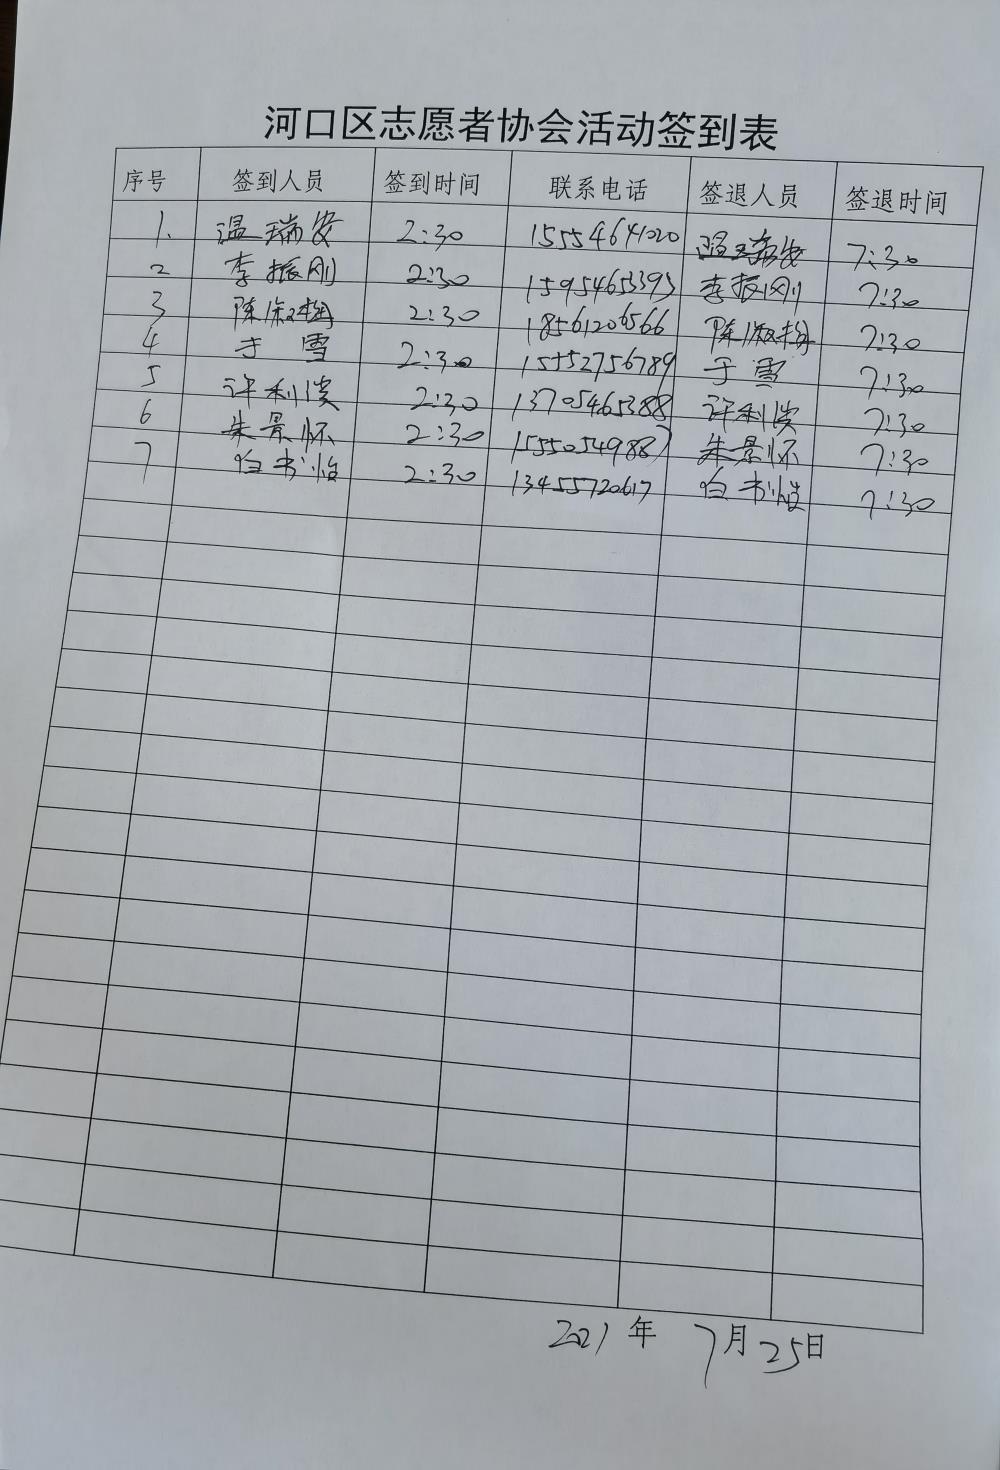 河口区志愿者协会活动签到表
序号 签到人员 签到时间 联系电话 签退人员 签退时间
1. 温瑞安 2:30 15554641020 温瑞安 7:30
2 李振刚 2:30 15954653393 李振刚 7:30
3 陈淑梅 2:30 18561206566 陈淑梅 7:30
4 于雪 2:30 15552756789 于雪 7:30
5 许利滨 2:30 13705465388 许利滨 7:30
6 朱景怀 2:30 15550549887 朱景怀 7:30
7 白书恒 2:30 13455720617 白书恒 7:30
2021年 7月25日